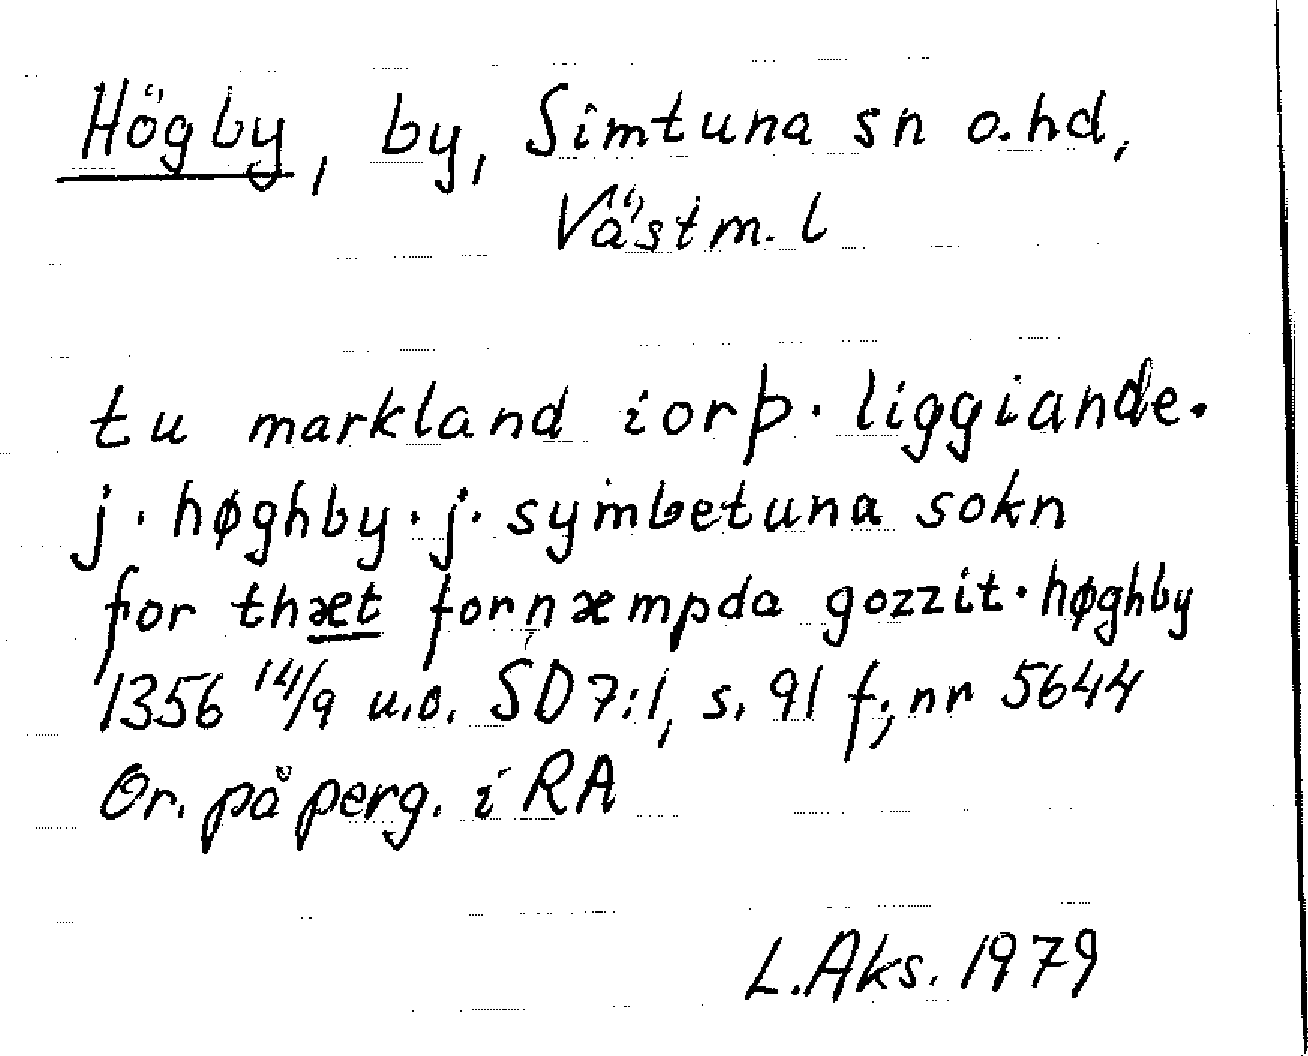 Högby, by, Simtuna sn o. hd,
Västm. l
tu markland iorþ· liggiande·
j· høghby· j· symbetuna sokn
for thæt fornæmpda gozzit· høghby
1356 14/9 u.o. SD 7:1, s. 91 f; nr 5644
Or. på perg. i RA
L.Aks. 1979